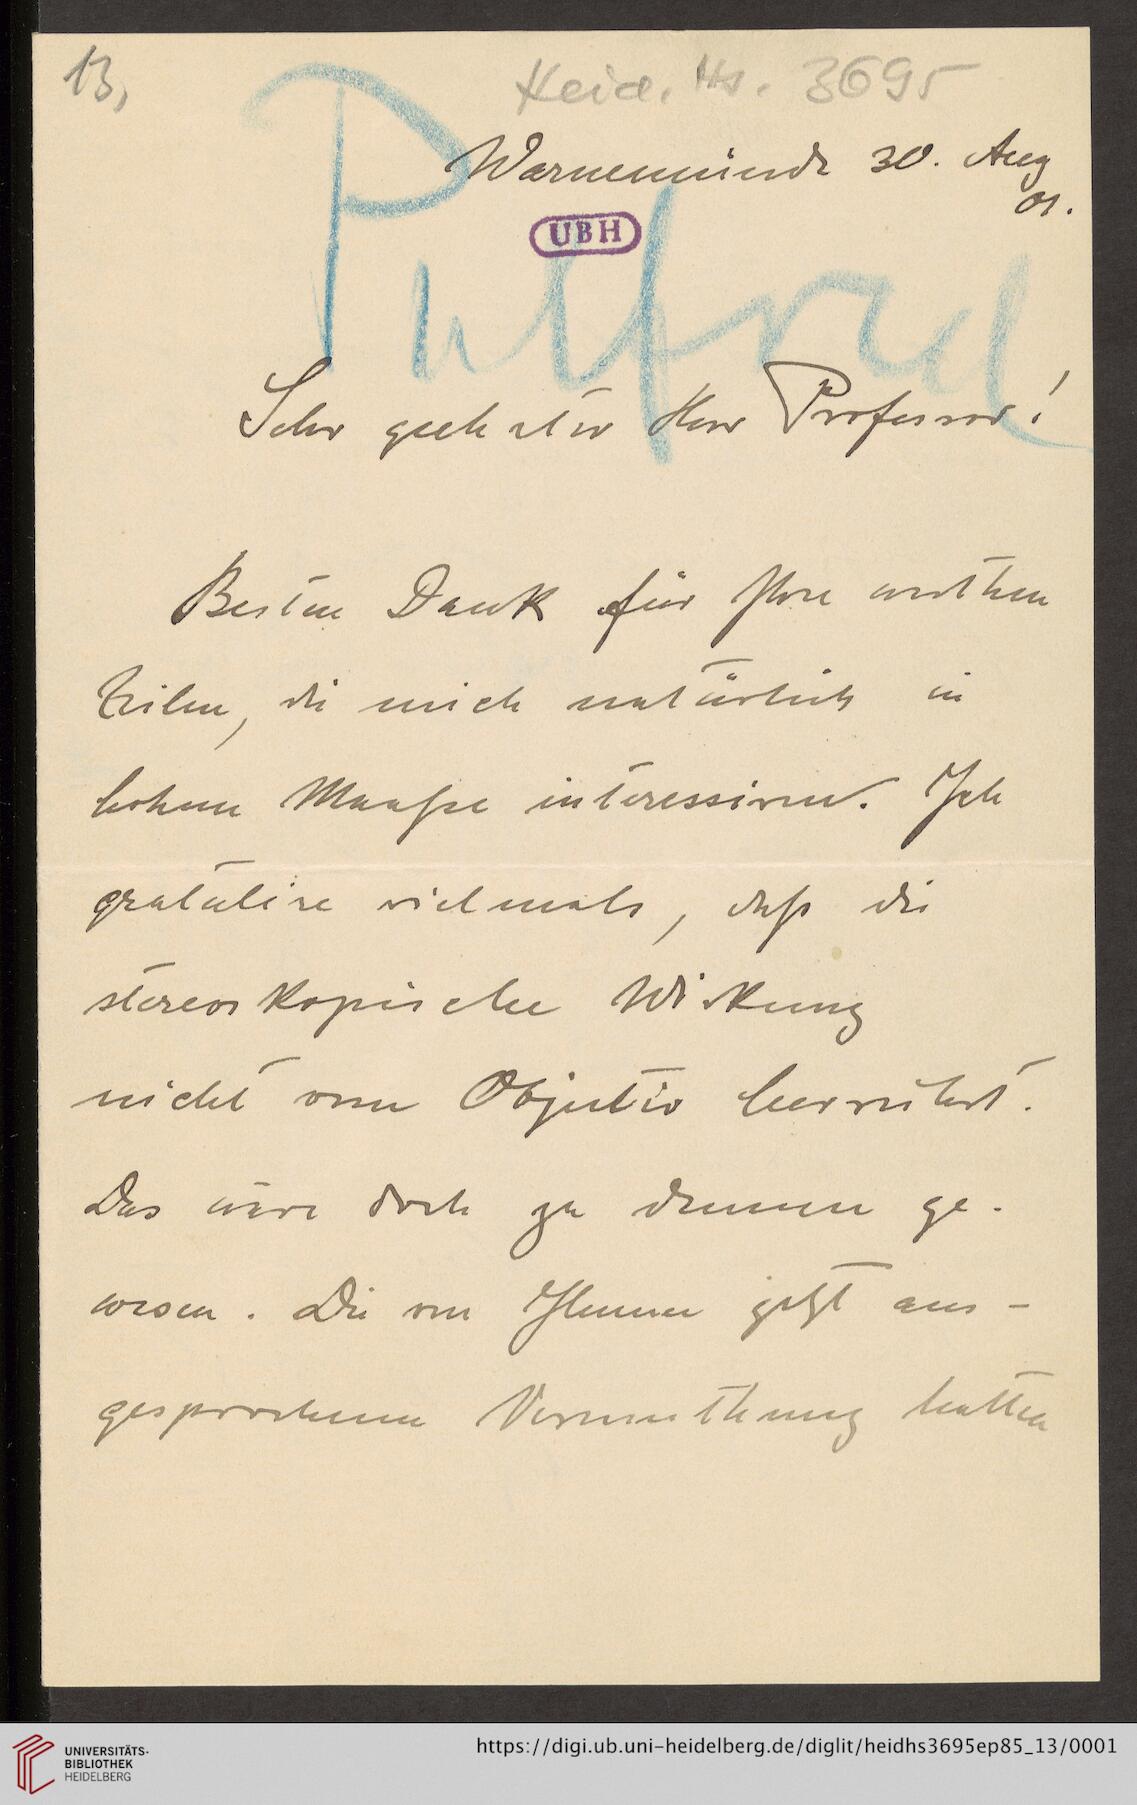 13,
Heid. Hs. 3695
Pulfrich
Warnemünde 30. Aug
01.
UBH
Sehr geehrter Herr Professor!
Besten Dank für Ihre werthen
Zeilen, die mich natürlich in
hohem Maaße interessiren. Ich
gratulire vielmals, daß die
stereoskopische Wirkung
nicht vom Objectiv herrührt.
Das wäre doch zu dumm ge-
wesen. Die von Ihnen jetzt aus-
gesprochene Vermuthung hatten
UNIVERSITÄTS-
BIBLIOTHEK
HEIDELBERG
https://digi.ub.uni-heidelberg.de/diglit/heidhs3695ep85_13/0001